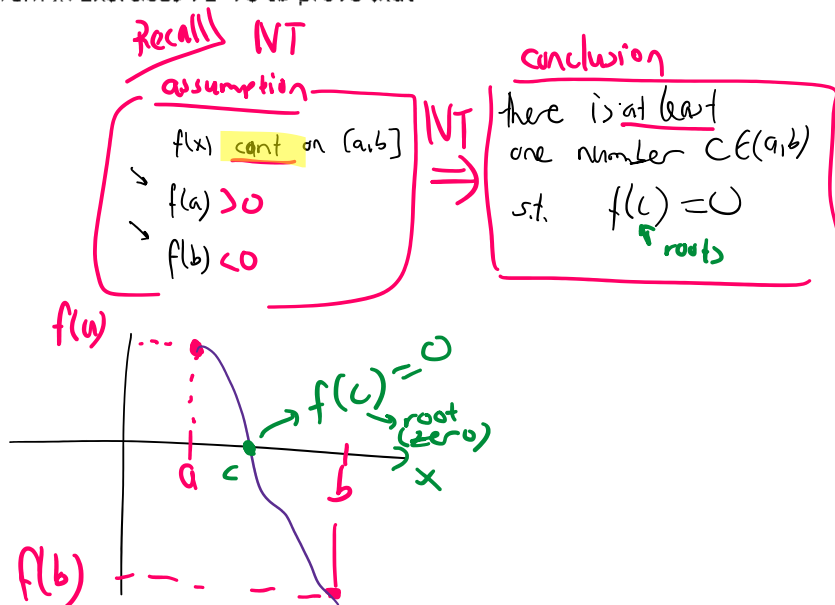 Recall NT
assumption
f(x) cont on [a,b]
f(a) >0
f(b) <0
NT
⇒
conclusion
there is at least
one number C∈(a,b)
s.t. f(c) =0
roots
f(a)
f(c) = 0
root
(zero)
a c b x
f(b)